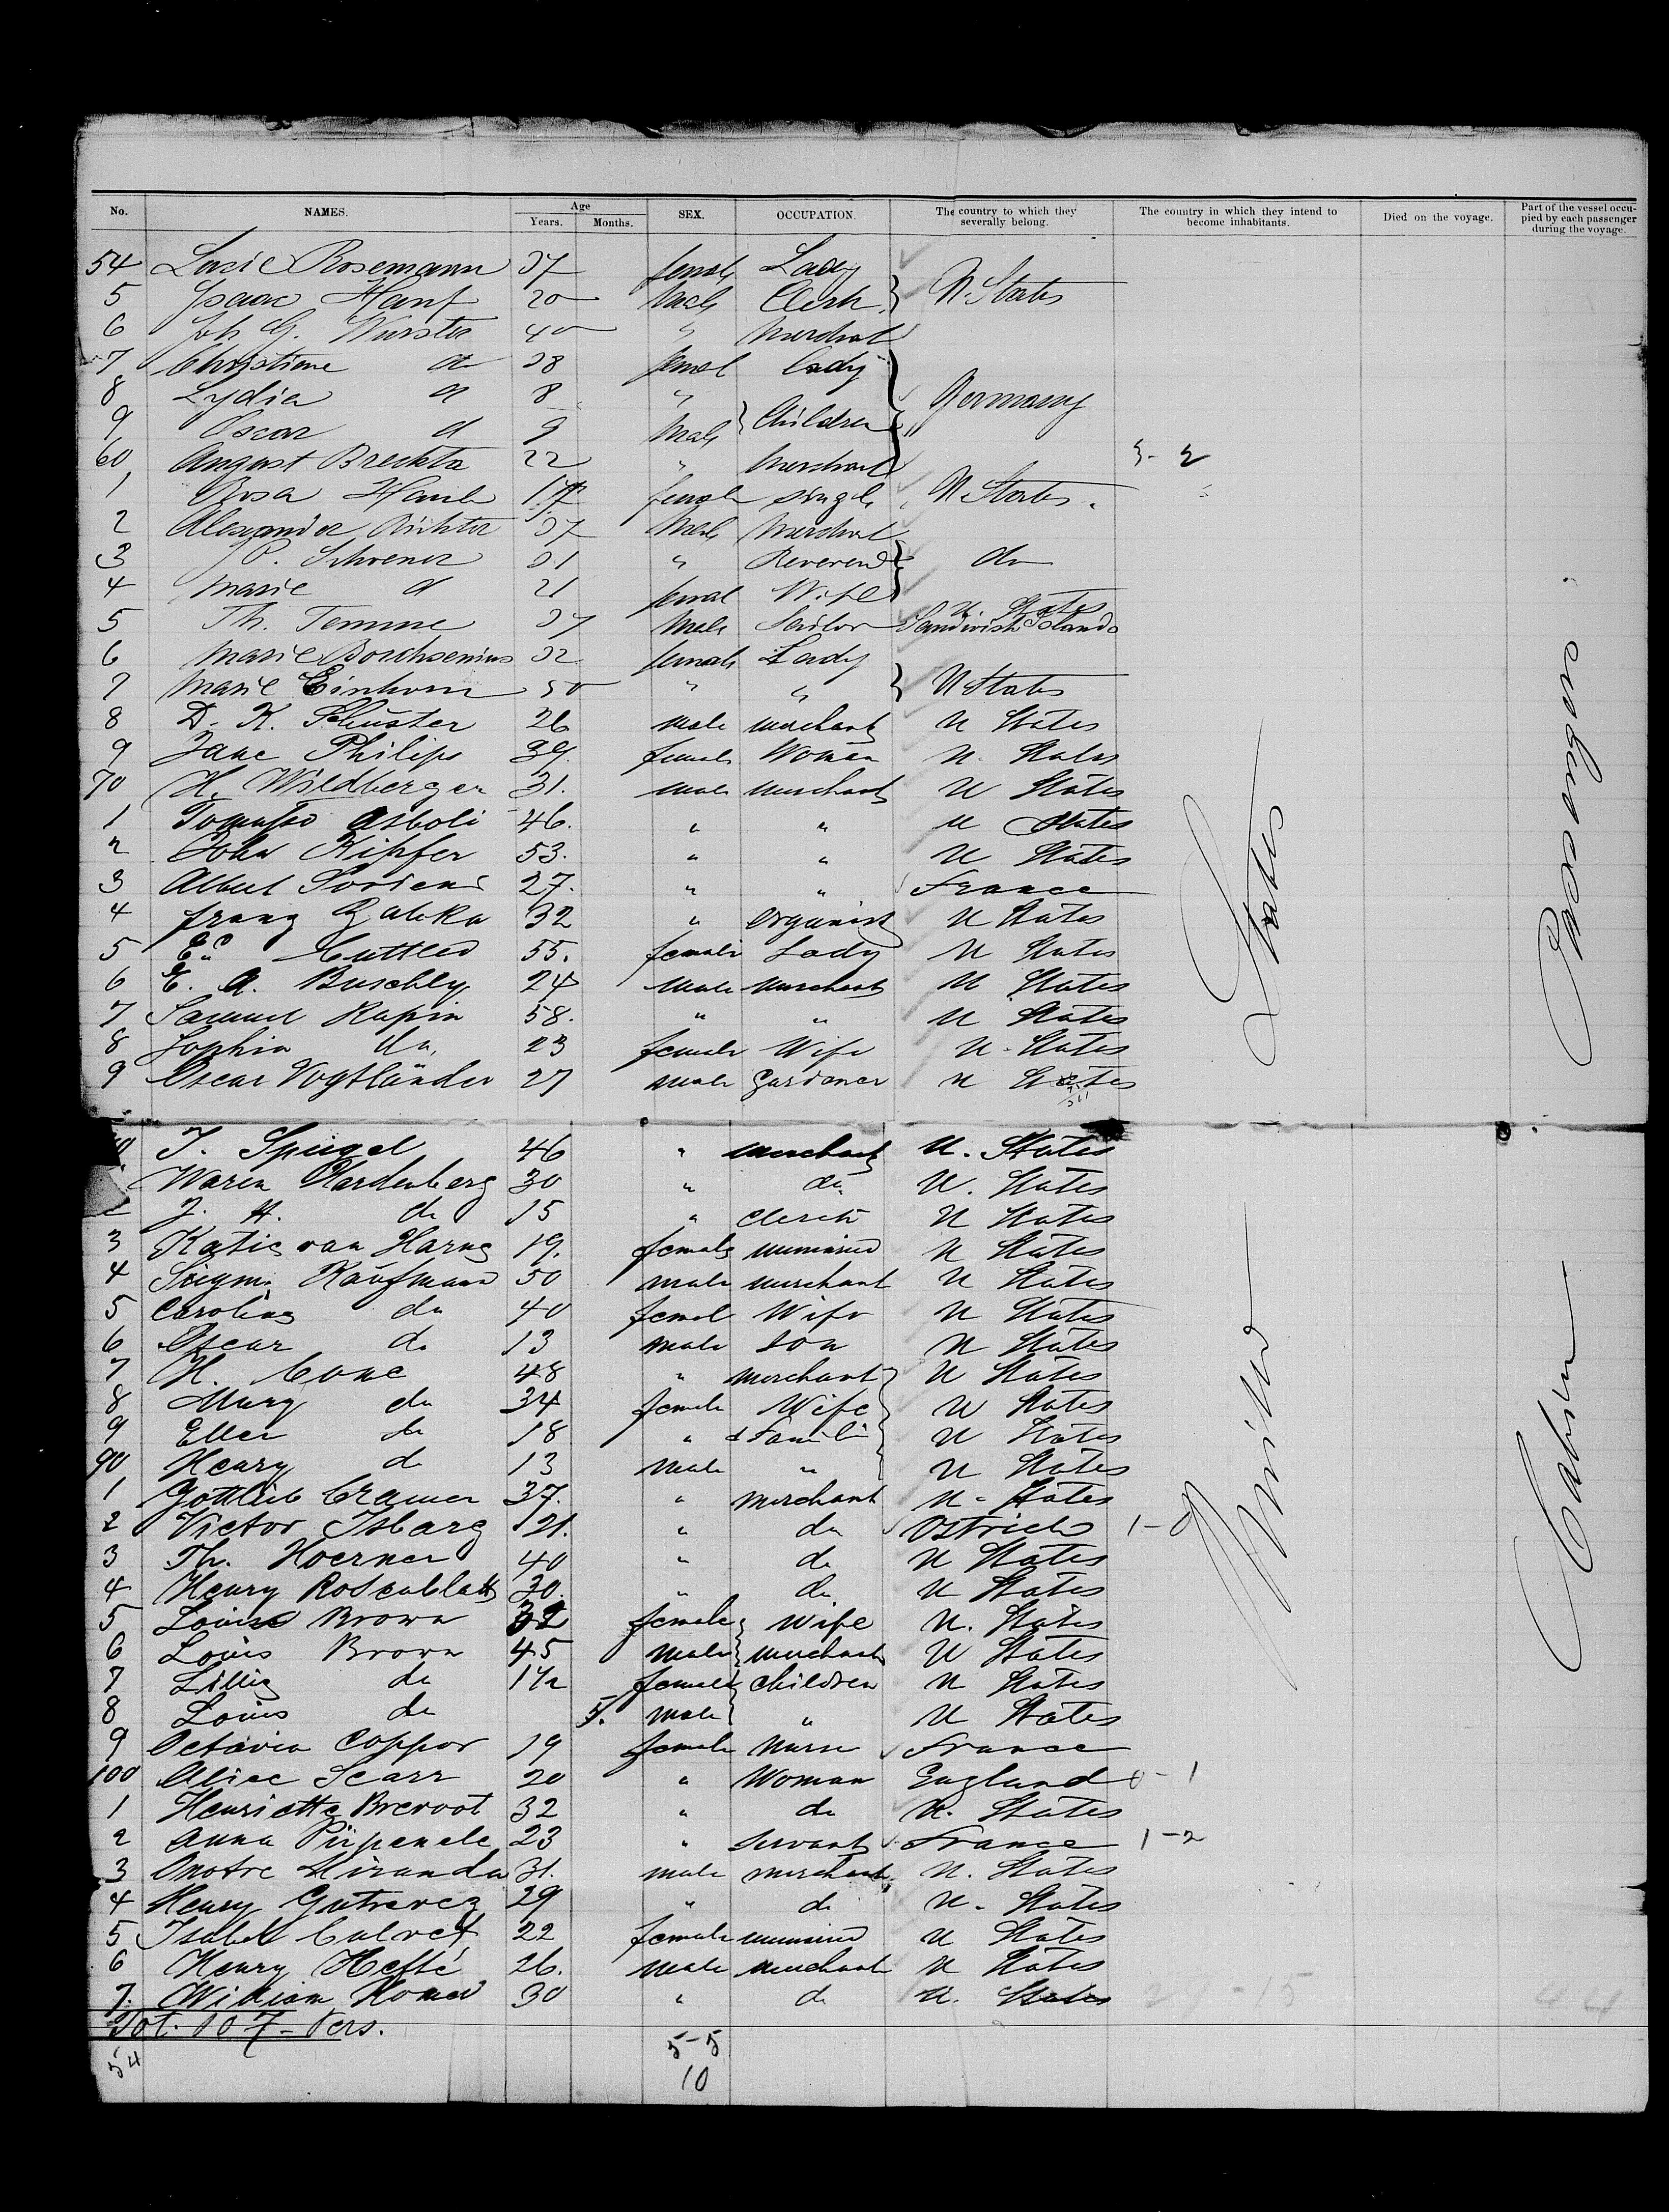 No. NAMES. Age Years. Months. SEX. OCCUPATION. The country to which they severally belong. The country in which they intend to become inhabitants. Died on the voyage. Part of the vessel occupied by each passenger during the voyage.
54 Rosemann 37 female Lady
5 Isaac 20 Male Clerk U. States
6 Joh G. Wurster 40 " Merchant
7 Christiane d 38 femal Lady
8 Lydia d 8 " Germany
9 Oscar d 9 Male Children
60 August 22 " Merchant 3-2
1 Rosa 17 female single U States.
2 Alexander Richter 37 Male Merchant
3 P. 31 " Reverend do
4 Marie d 21 femal Wife
5 Th. Temme 37 Male Sailor U. States Sandwich Islands
6 Marie Borchsenius 32 female Lady
7 Marie Einhorn 50 " " U States
8 D. K. Schuster 26 male merchant U States
9 Jane Philips 39. female Woman U. States
70 H. Wildberger 31. male merchant U States
1 Tomaso Asboli 46. " " U States
2 John Kipfer 53. " " U States
3 Albert 27. " " France
4 Franz 32 " organist U States
5 55. female Lady U States
6 E. A. Buschley 24 male merchant U States
7 Samuel Rapin 58. " " U States
8 Sophia do. 23 female Wife U. States
9 Oscar Vogtländer 27 male Gardener U States
J. Spiegel 46 " merchant U. States
Waren Hardenberg 30 " do U. States
J. H. do 15 " U States
3 Katie van Harng 19. female U States
4 Kaufmann 50 male merchant U States
5 Caroline do 40 femal Wife U States
6 Oscar do 13 male son U States
7 H. Cone 48 " merchant U States
8 Mary do 34 female Wife U States
9 Ellen do 18 " & U States
90 Henry do 13 male " U States
1 Gottlieb Cramer 37. " merchant U. States
2 Victor Isbarg 21. " do Ostrich 1-0
3 Th. Hoerner 40 " do U States
4 Henry Rosenblatt 30. " do U States
5 Louise Brown 32 female Wife U. States
6 Louis Brown 45 male merchant U States
7 Lillie do 1½ female children U States
8 Louis do 5. male " U States
9 Octavia Coppor 19 female Nurse France
100 Alice Scarr 20 " Woman England 0-1
1 Henriette Brevoot 32 " do U. States
2 Anna 23 " servant France 1-2
3 Onofre Miranda 31. male merchant U. States
4 Henry 29 " do U. States
5 Isabel Calvet 22 female U States
6 Henry 26. male merchant U States
7. William 30 " do U. States 29-15 44
Tot. 107 Pers.
54 5-5
10
United States
Cabin Passengers